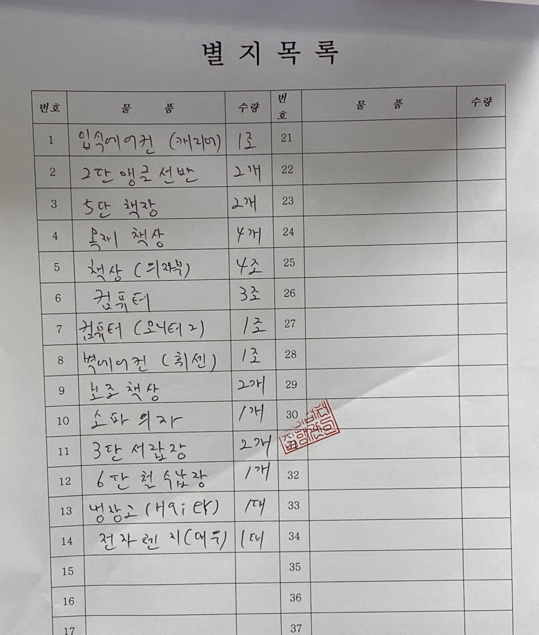 별 지 목 록
번호 물 품 수량 번호 물 품 수량
1 입식에어컨 (캐리어) 1조 21
2 2단 앵글 선반 2개 22
3 5단 책장 2개 23
4 목재 책상 4개 24
5 책상 (의자부) 4조 25
6 컴퓨터 3조 26
7 컴퓨터 (모니터2) 1조 27
8 벽에어컨 (휘센) 1조 28
9 보조 책상 2개 29
10 소파 의자 1개 30
11 3단 서랍장 2개
12 6단 철 수납장 1개 32
13 냉장고 1대 33
14 전자렌지 (대우) 1대 34
15 35
16 36
17 37